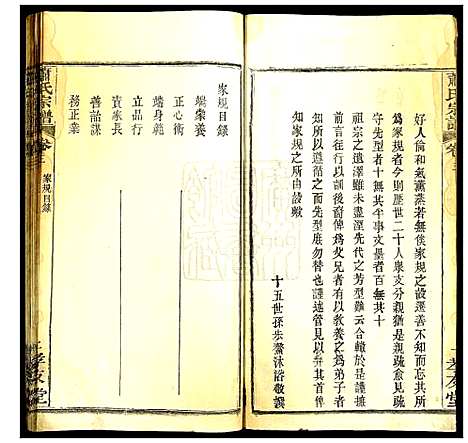 好人倫和氣薰蒸若無俟家規之設還善而不知
為家規者今則歷世二十人衆支分親猶是親疏愈見疏
守先型者十無其半事文墨者百無其
祖宗之遺澤雖未盡湮先代之芳型難云合轍於是謹述
前言往行以訓後裔俾為父兄者有以教養之為弟子者
知所遵循之而先型庶勿替也謹述管見以弁其首而
知家規之所由設歟
十五世孫步鰲沐浴敬譔
蕭氏宗譜
卷三
家規目錄
二
孝友堂
家規目錄
端蒙養
正心術
端身範
立品行
責承長
善詒謀
務正業